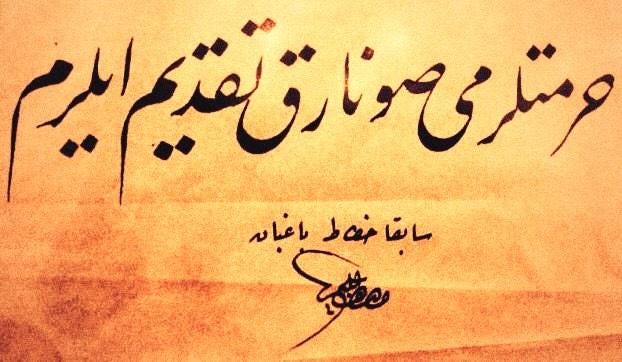 حرمتلرمی صونارق تقدیم ایلرم
سابقا خطاط باغبان